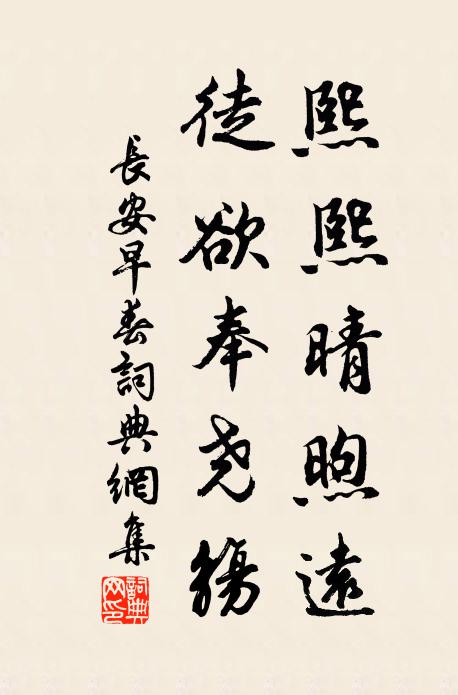 熙熙晴煦遠
徒欲奉尧觴
長安早春詞典網集
詞典
网印